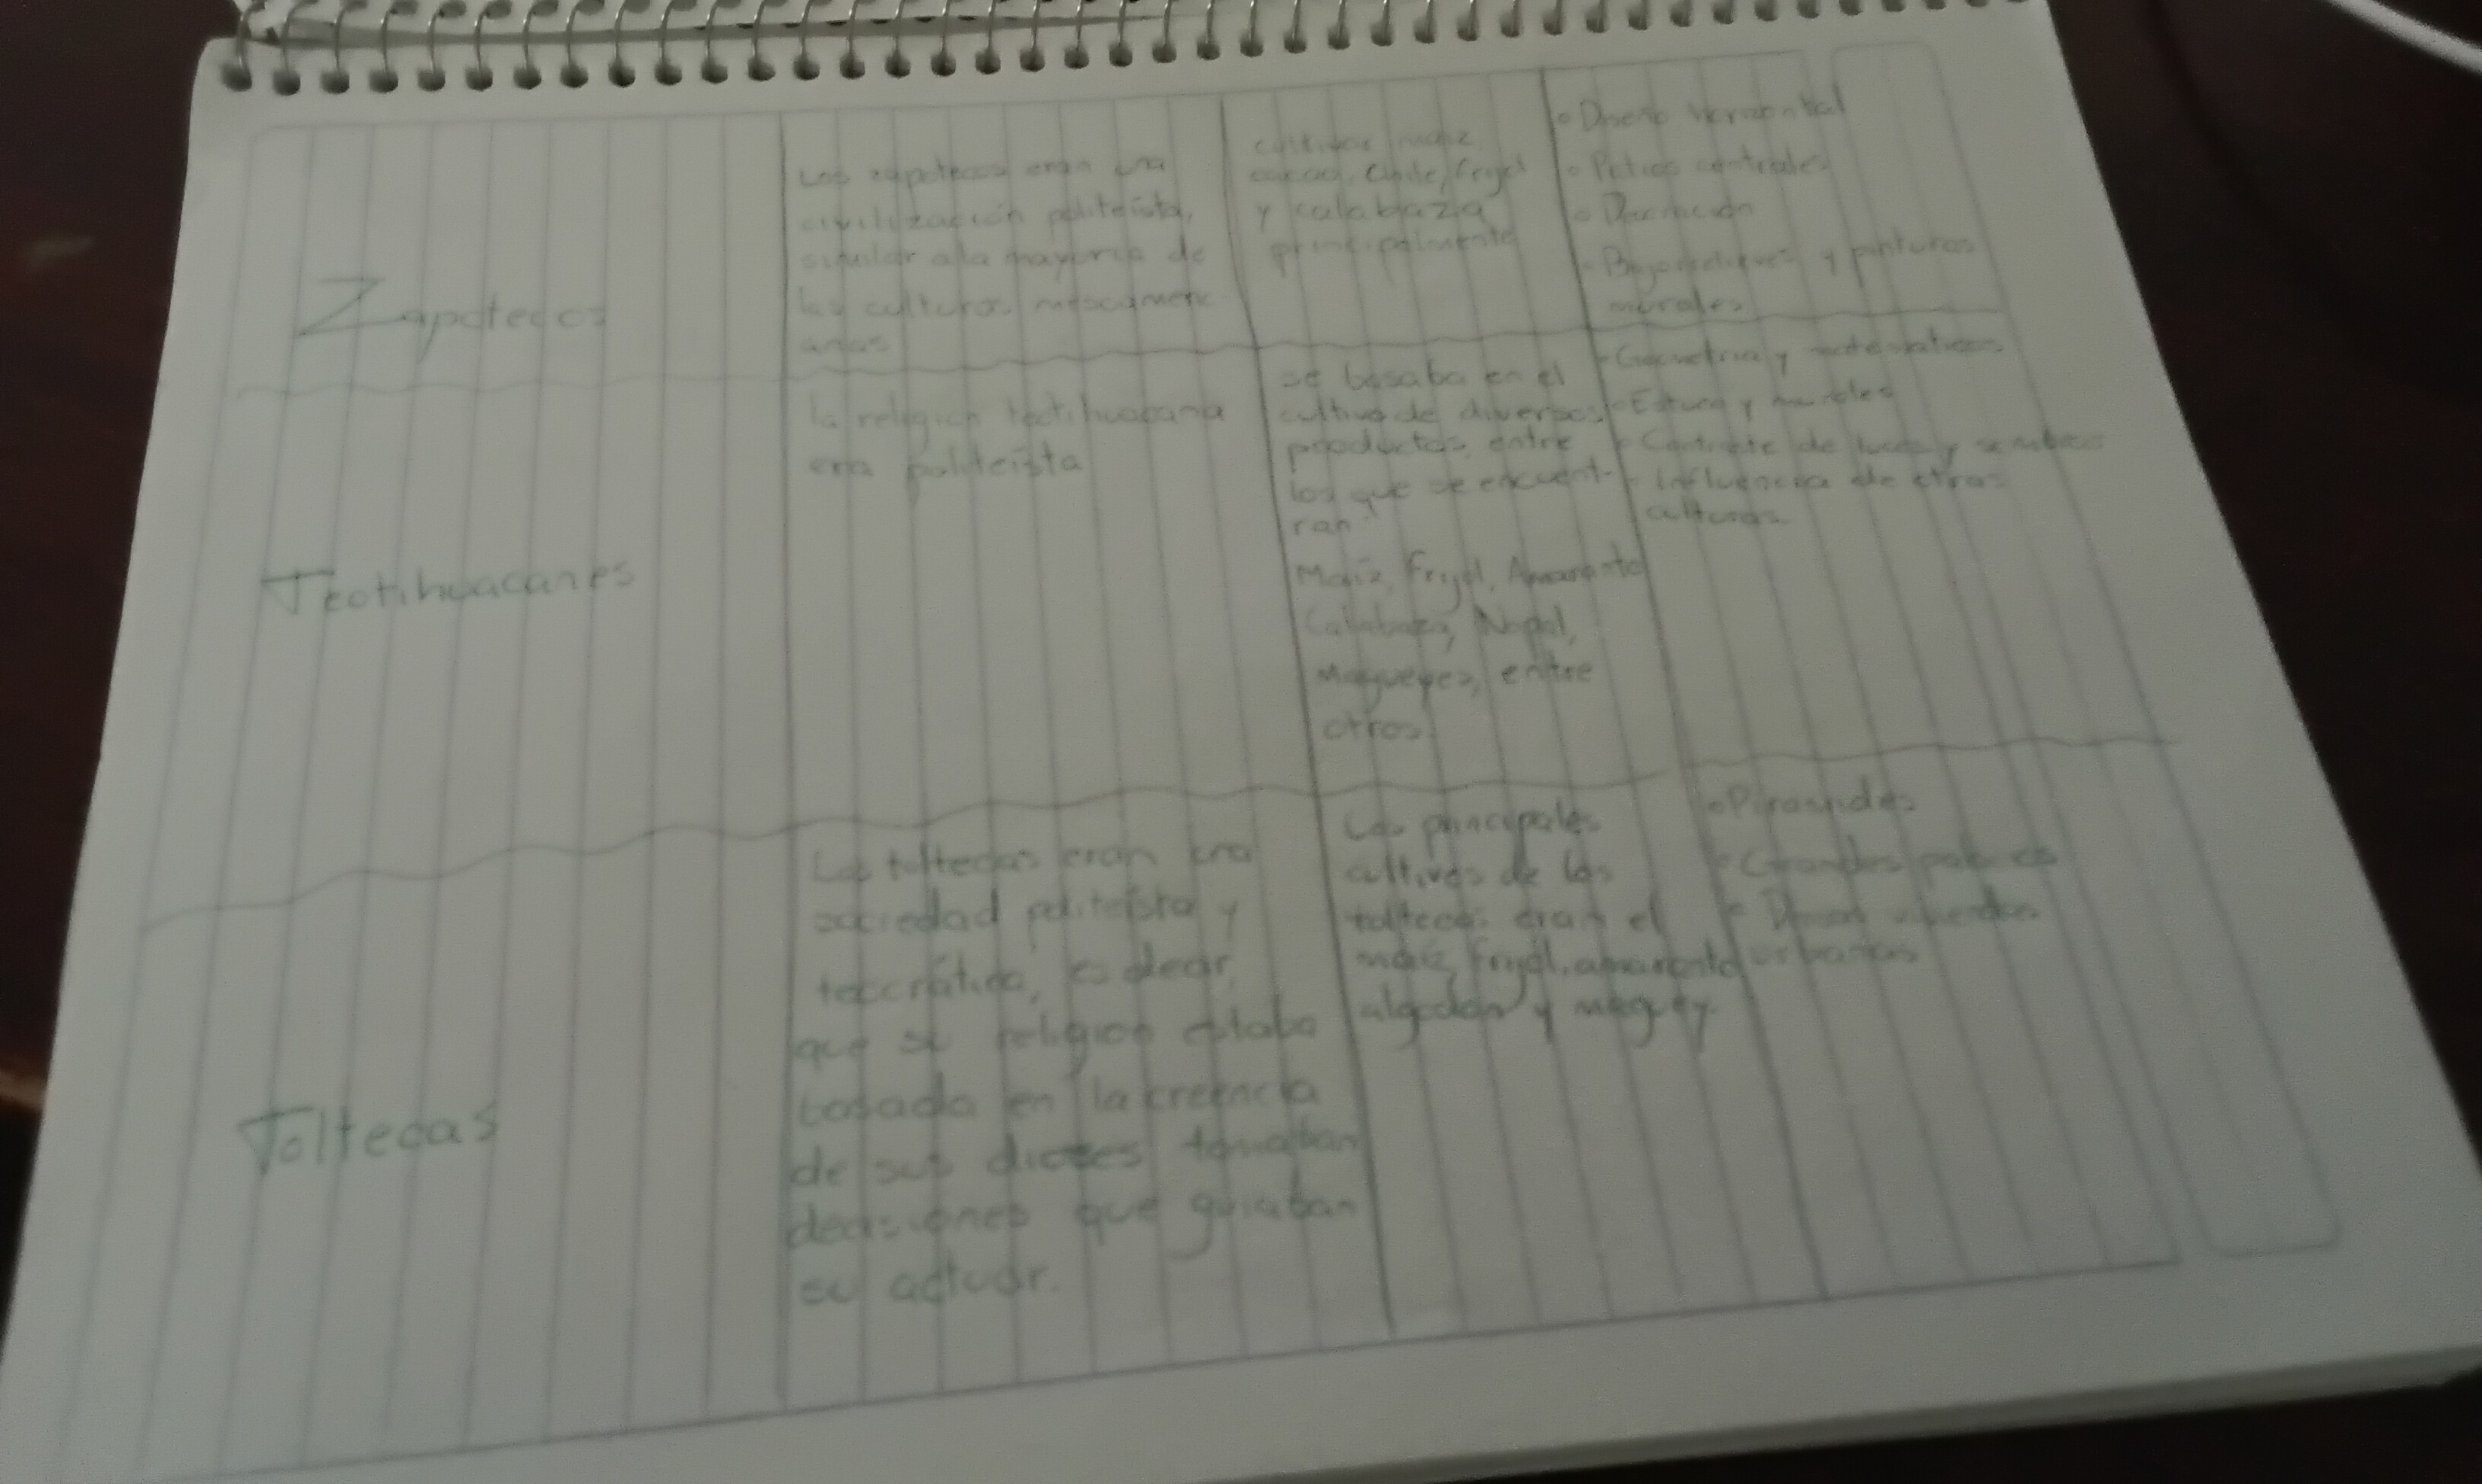 Zapotecos
Los zapotecos eran una
civilización politeísta,
similar a la mayoria de
las culturas mesoameric-
anas
cultivar maíz,
cacao, Chile, frijol
y calabaza
principalmente
Diseño horizontal
Patios centrales
Decoración
Bajorrelieves y pinturas
murales
Teotihuacanes
la religion teotihuacana
era politeísta
se basaba en el
cultivo de diversos
productos, entre
los que se encuent-
ran
Maíz, frijol, Amaranto
Calabaza, Nopal,
Magueyes, entre
otros.
Geometria y matematicas
y murales
Contraste de luces y sombras
Influencia de otras
culturas.
Toltecas
Los toltecas eran una
sociedad politeísta y
teocrática, es decir,
que su religion estaba
basada en la creencia
de sus dioses tomaban
decisiones que guiaban
su actuar.
Los principales
cultivos de los
toltecas eran el
maíz, frijol, amaranto
algodon y maguey.
Piramides
Grandes palacios
viviendas
urbanas